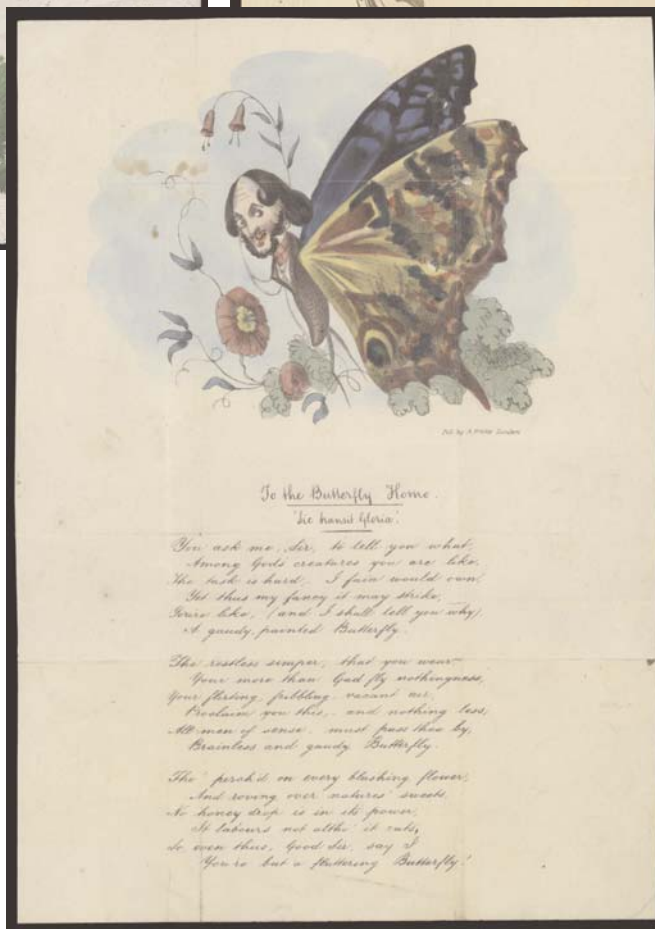 Pub. by A. Park
London
To the Butterfly Home.
'Sic transit Gloria'.
You ask me, Sir, to tell you what,
Among God's creatures you are like,
The task is hard, I fain would own,
Yet thus my fancy it may strike,
You're like, (and I shall tell you why)
A gaudy, painted Butterfly.
The restless simper, that you wear
Your more than Gad fly nothingness,
Your flirting, fribbling, vacant air,
Proclaim you this, and nothing less,
All men of sense, must pass thee by,
Brainless and gaudy Butterfly.
Tho' perch'd on every blushing flower,
And roving over natures' sweets,
No honey drop is in its power,
It labours not altho' it eats,
So, even thus, Good Sir, say I
You're but a fluttering Butterfly!